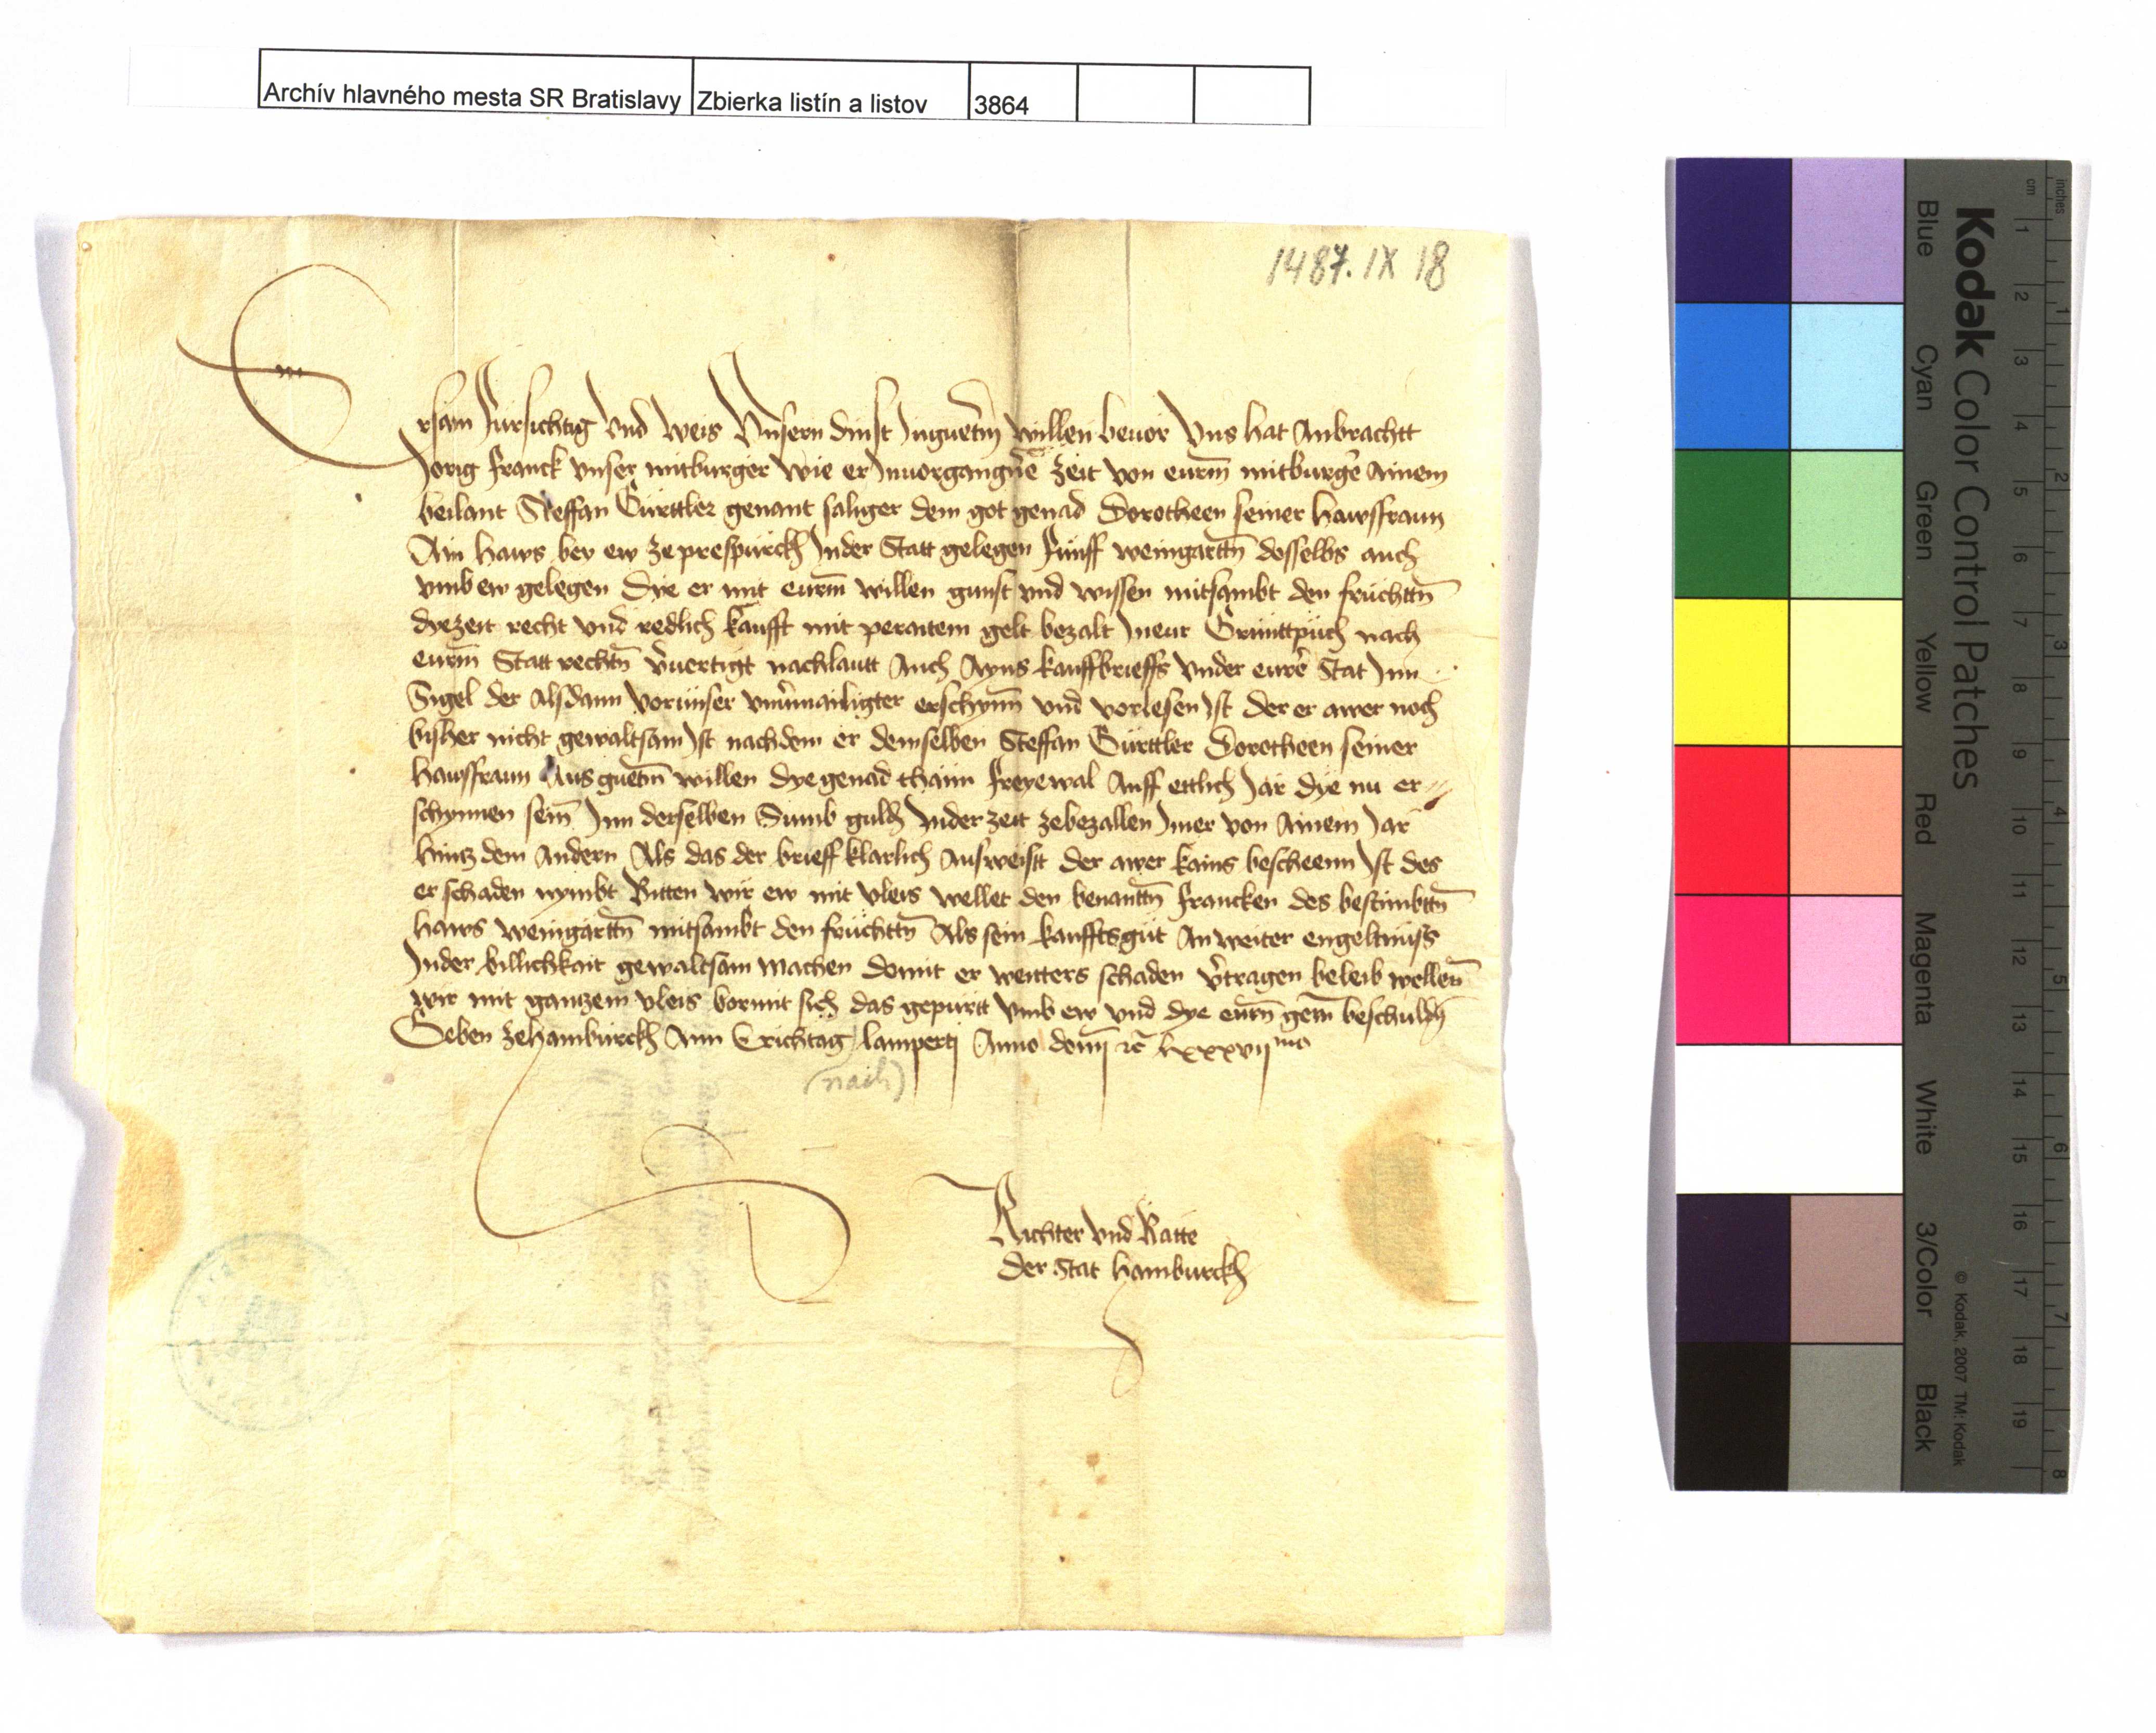 Archív hlavného mesta SR Bratislavy Zbierka listín a listov 3864
1487. IX 18
Ersam fursichtig Vnd weis Vnsern dinst Inguetm willen beuor Vns hat Anbrachtt
Jorig franck vnser mitburger wie er Inuorgangne zeit von eurm mitburge Ainem
beilant Steffan Gürttler genant saliger dem got genad Dorotheen seiner hawsfraun
Ain haws bey ew ze prespürckh Inder Statt gelegen fünff weingarttn dosselbs auch
vmb ew gelegen Dye er mit eurm willen gunst vnd wissen mitsambt den früchttn
dyezeit recht vnd redlich kaufft mit peraitem gelt bezalt In eur Grünttpüch nach
eurm Statt rechtn veruertigt nachlautt Auch Ayns kauffbrieffs Vnder eure Stat Inn
Sigel der Alsdann vor vnser erschynn vnd vorlesen Ist der er awer noch
bisher nicht gewaltsam Ist nachdem er demselben Steffan Gürttler Dorotheen seiner
hawsfraun Aus guetm willen dye genad thann freyewal Auff ettlich Jar dye nu er
schynnen sein Inn derselben Sumb guld Inder zeit zebezallen Imer von Ainem Jar
hintz dem Andern Als das der brieff klarlich Ausweist der awer kains bescheenn Ist des
er schaden nymbt Bitten wir ew mit vleis wellet den benanttn francken des bestimbttn
haws weingarttn mitsambt den früchttn Als sein kaufftsgüt An weiter engeltnüss
Inder billichkait gewaltsam machen domit er weitters schaden vertragen beleib wellen
wir mit gantzem vleis vormit sich das gepurtt Vmb ew vnd dye eurn gern beschuldn
Geben ze Hamburckh Ann Erichtag lamperti Anno domj rc lxxxvij mo
(nach)
Richter Vnd Ratte
der Stat Hamburckh
Kodak Color Control Patches
Blue Cyan Green Yellow Red Magenta White 3/Color Black
© Kodak, 2007 TM: Kodak
inches 1 2 3 4 5 6 7 8
cm 1 2 3 4 5 6 7 8 9 10 11 12 13 14 15 16 17 18 19